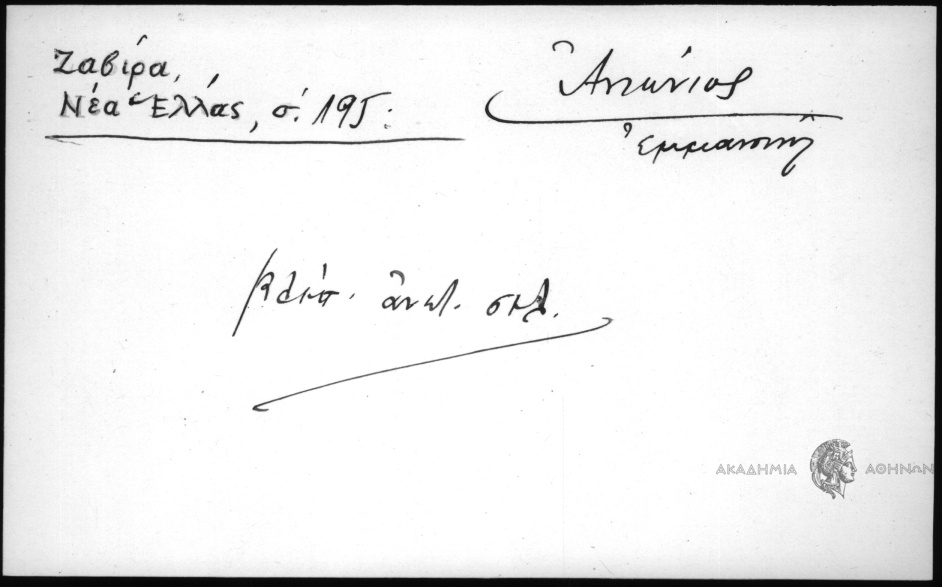 Ζαβίρα,
Νέα Ἑλλάς, σ. 195.
Ἀντώνιος
Ἐμμανουὴλ
βλέπ. ἀνωτ. σελ.
ΑΚΑΔΗΜΙΑ ΑΘΗΝΩΝ